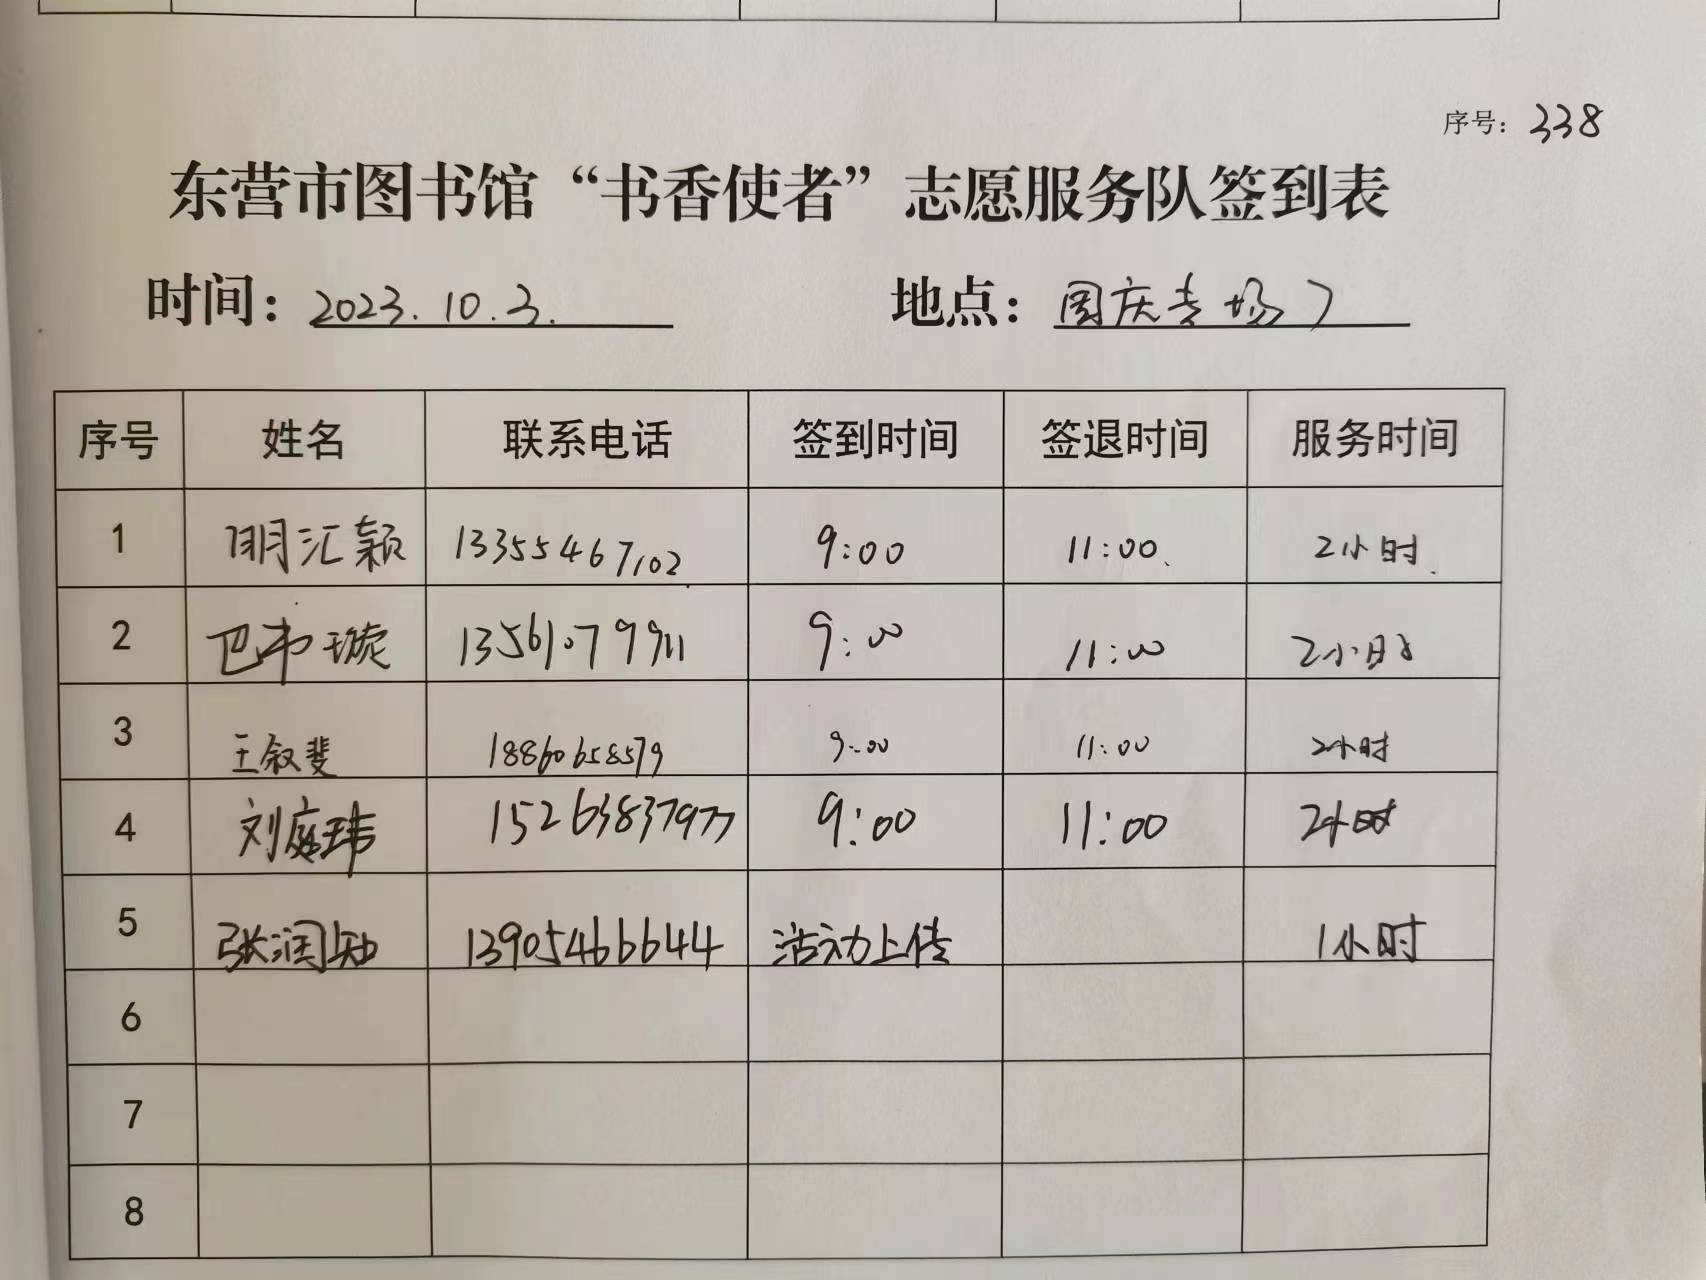 序号：338
东营市图书馆“书香使者”志愿服务队签到表
时间：2023.10.3. 地点：国庆专场7
序号 姓名 联系电话 签到时间 签退时间 服务时间
1 明汇颖 13355467102 9:00 11:00 2小时
2 巴书璇 13561079911 9:00 11:00 2小时
3 王叙斐 18860658579 9:00 11:00 2小时
4 刘庭玮 15263837977 9:00 11:00 2小时
5 张润知 13905466644 活动上传 1小时
6
7
8